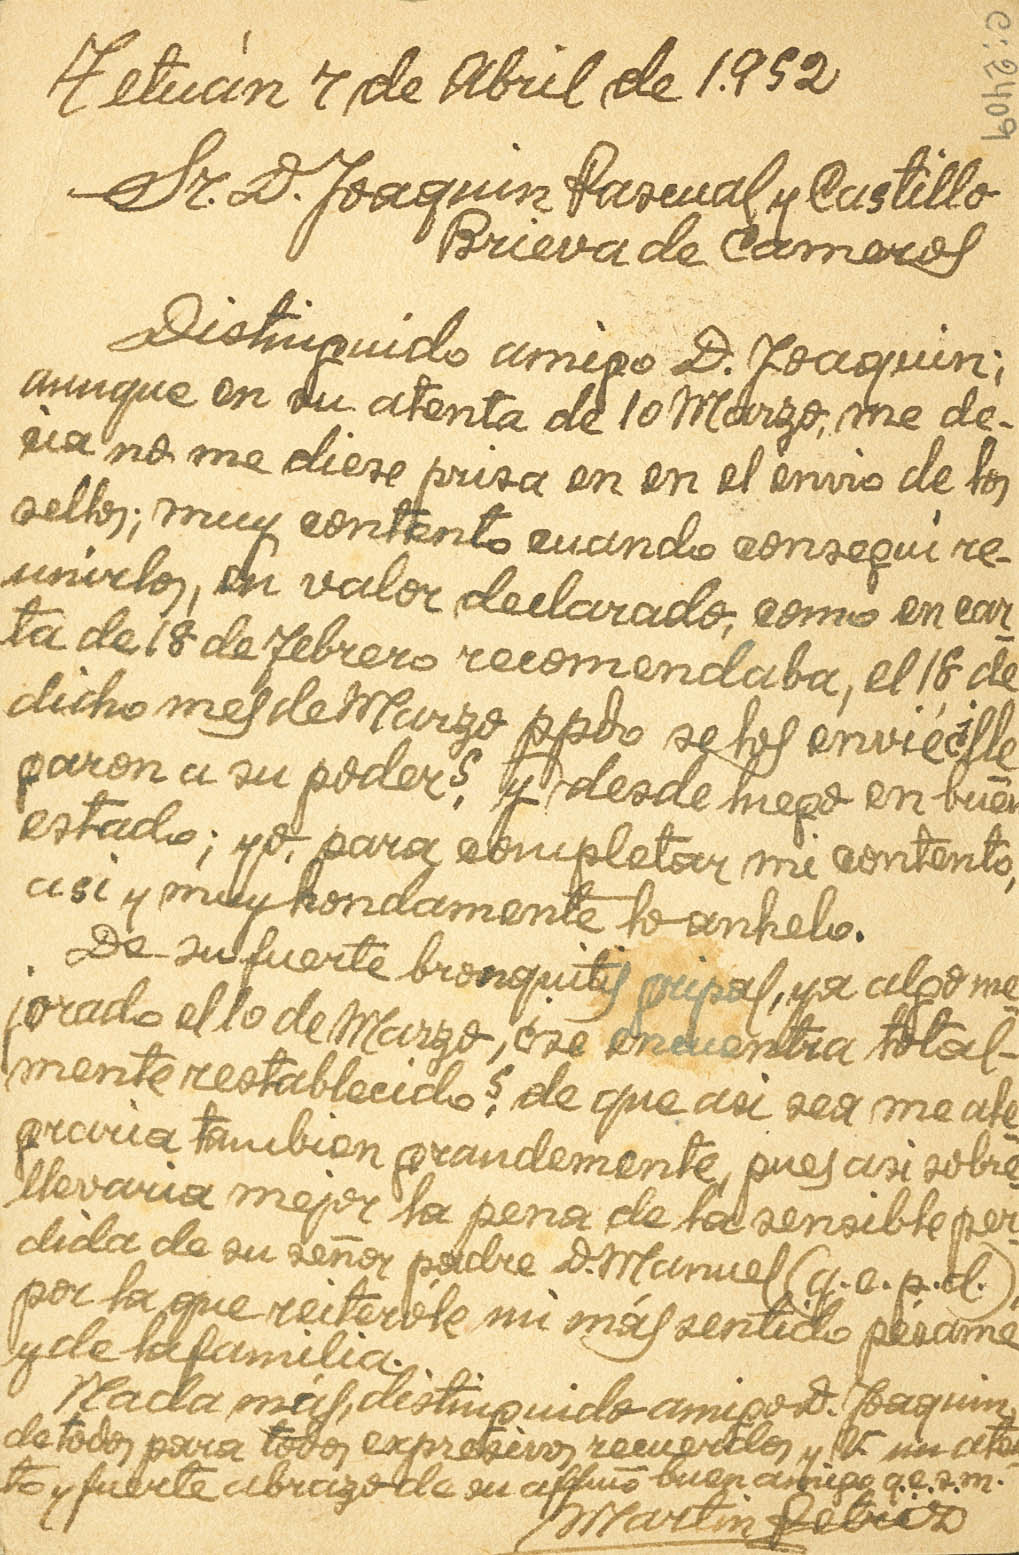 C: 2409
Tetuán 7 de Abril de 1.952
Sr. D. Joaquin Pascual y Castillo
Brieva de Cameros
Distinguido amigo D. Joaquin;
aunque en su atenta de 10 Marzo, me de-
cia no me diese prisa en en el envio de los
sellos; muy contento cuando consegui re-
unirlos, en valor declarado, como en car-
ta de 18 de Febrero recomendaba, el 18 de
dicho mes de Marzo ppdo se los envié ¿lle
garon a su poder?, y desde luego en buen
estado; yo, para completar mi contento,
asi y muy hondamente lo anhelo.
De su fuerte bronquitis gripal, ya algo me
jorado el 10 de Marzo, ¿se encuentra total-
mente restablecido?, de que asi sea me ale
graria tambien grandemente, pues asi sobre
llevaria mejor la pena de la sensible per-
dida de su señor padre D. Manuel (q.e.p.d.),
por la que reiterole mi más sentido pésame
y de la familia.
Nada más, distinguido amigo D. Joaquin,
de todos para todos expresivos recuerdos y V. un aten
to y fuerte abrazo de su affmo buen amigo q.e.s.m.
Martin